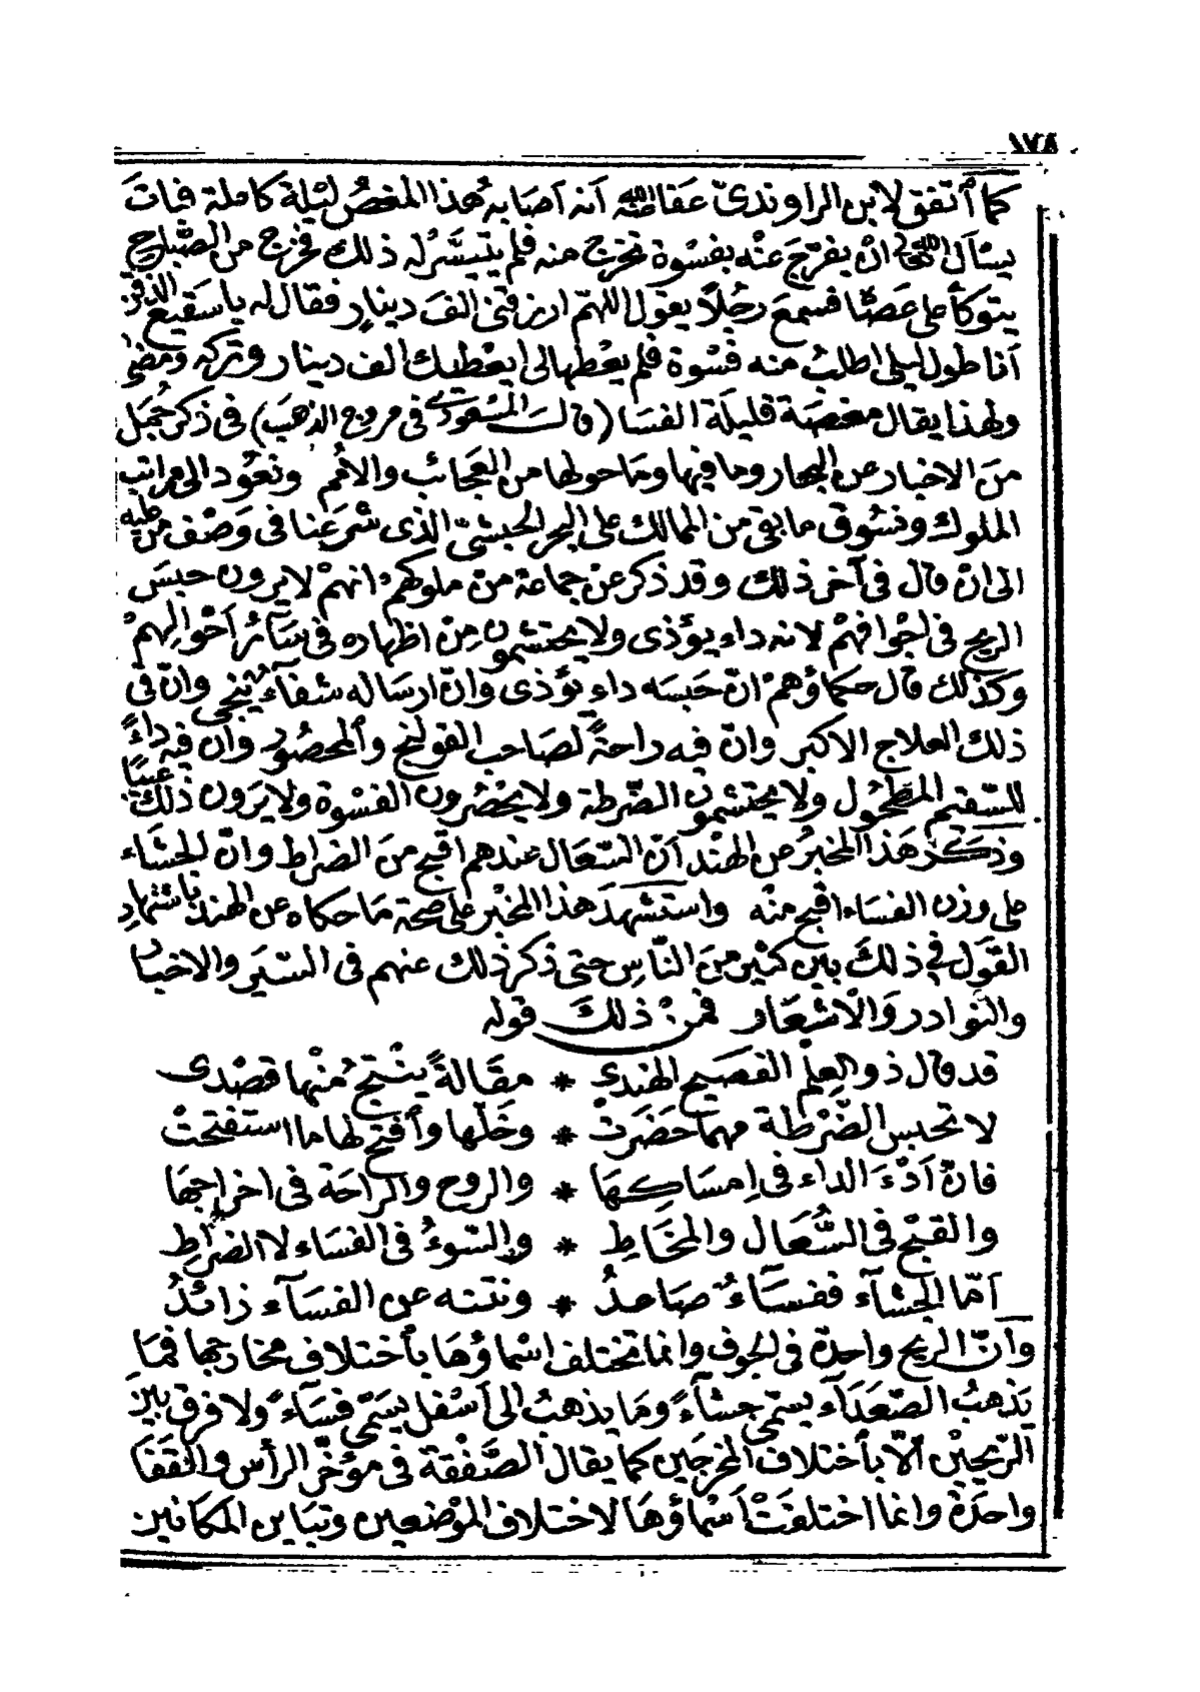 ١٧٨
كما أتفق لابن الراوندىّ عفا الله عنه أنه أصابه هذا المغص ليْلة كاملة فبات
يسْأل الله تعالى انْ يفرّجَ عنْه بفسْوة تخرج منه فلم يتيسَّر له ذلك فخرج من الصّباح
يتوكأ على عَصًا فسمعَ رجُلاً يقول اللهمّ ارزقنى الفَ دينارٍ فقال له ياسَقيع الذقن
أنا طول ليلى اطلبُ منه فسْوة فلم يعْطها لى ايعْطيك الف دينار وتركه ومضى
ولهذا يقال مغصَة قليلَة الفسَا (قال المسْعودى فى مروج الذهَب) فى ذكر جُمَل
منَ الاخبار عن البحار وما فيها ومَا حولها من العَجائب والأمم ونعُود الى مراتب
الملوك ونسُوق ما بقى من الممالك على البحر الحبشىّ الذى شرعْنا فى وَصْف من عليه
الى انْ قال فى آخر ذلك وقد ذكر عنْ جماعة منْ ملوكهم انهمْ لا يرون حبسَ
الريح فى اجْوافهمْ لانه داء يؤذى ولا يحتشمون مِنْ اظهاره فى سَآئر أحْوالِهمْ
وكذلك قال حكماؤهمْ انّ حَبسَه داء يؤذى وَانّ ارسَاله شفآء ينجى وانّ فى
ذلك العلاج الاكبر وانّ فيه راحةً لصَاحب القولنج وألمحصُور وأن فيه داءً
للسّقيم المطحُول ولا يحتشمون الضّرطة ولا يحْصُرون الفسْوة ولا يرَون ذلك عيبًا
وذكَر هَذا المخبرُ عن الهنْد أنّ السّعَال عندهم اقبح منَ الضراط وانّ الجشَاء
على وزن الفسَاء اقبح منْه واستشهدَ هذا المخبر على صحة مَا حكاه عن الهند باشتهارِ
القَول فى ذلكَ بين كثير منَ النّاسِ حتى ذكر ذلك عنهم فى السّيَر والاخبار
والنوادر وَالأشْعَار فمنْ ذلكَ قوله
قد قال ذو العِلْم الفصَيح الهندى * مقَالةً ينْتج مُنْها قصْدى
لا تحبس الضّرْطة مهما حَضَرتْ * وخَلّها وأفتح لها ما استفتحتْ
فانّ أدْءَ الداء فى اِمسَاكِهَا * والروح والرَّاحَة فى اخراجهَا
والقبْح فى السُّعَال والمخَاطِ * والسّوءُ فى الفسَاء لا الضراطِ
أمّا الجشآء ففسَآءُ صَاعدُ * ونتنه عن الفسَآء زائدُ
وَأنّ الريح واحدة فى الجوف وانما تختلف اسْماؤهَا بأختلاف مخارجها فمَا
يذهبُ الصّعَدَآء يسمّى جشآءً ومَا يذهبُ الى أسْفل يسَمّى فسَآءً ولا فرق بين
الرّيحيْن ألاّ بأختلاف المخرجَين كما يقال الصَّفْقة فى مؤخّر الرأس والقَفا
واحدةْ وانما اختلفَتْ أسْماؤهَا لاختلاف الموْضعين وتبَاين المكانين